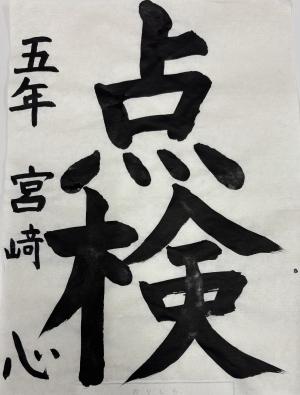 点検
五年 宮﨑 心